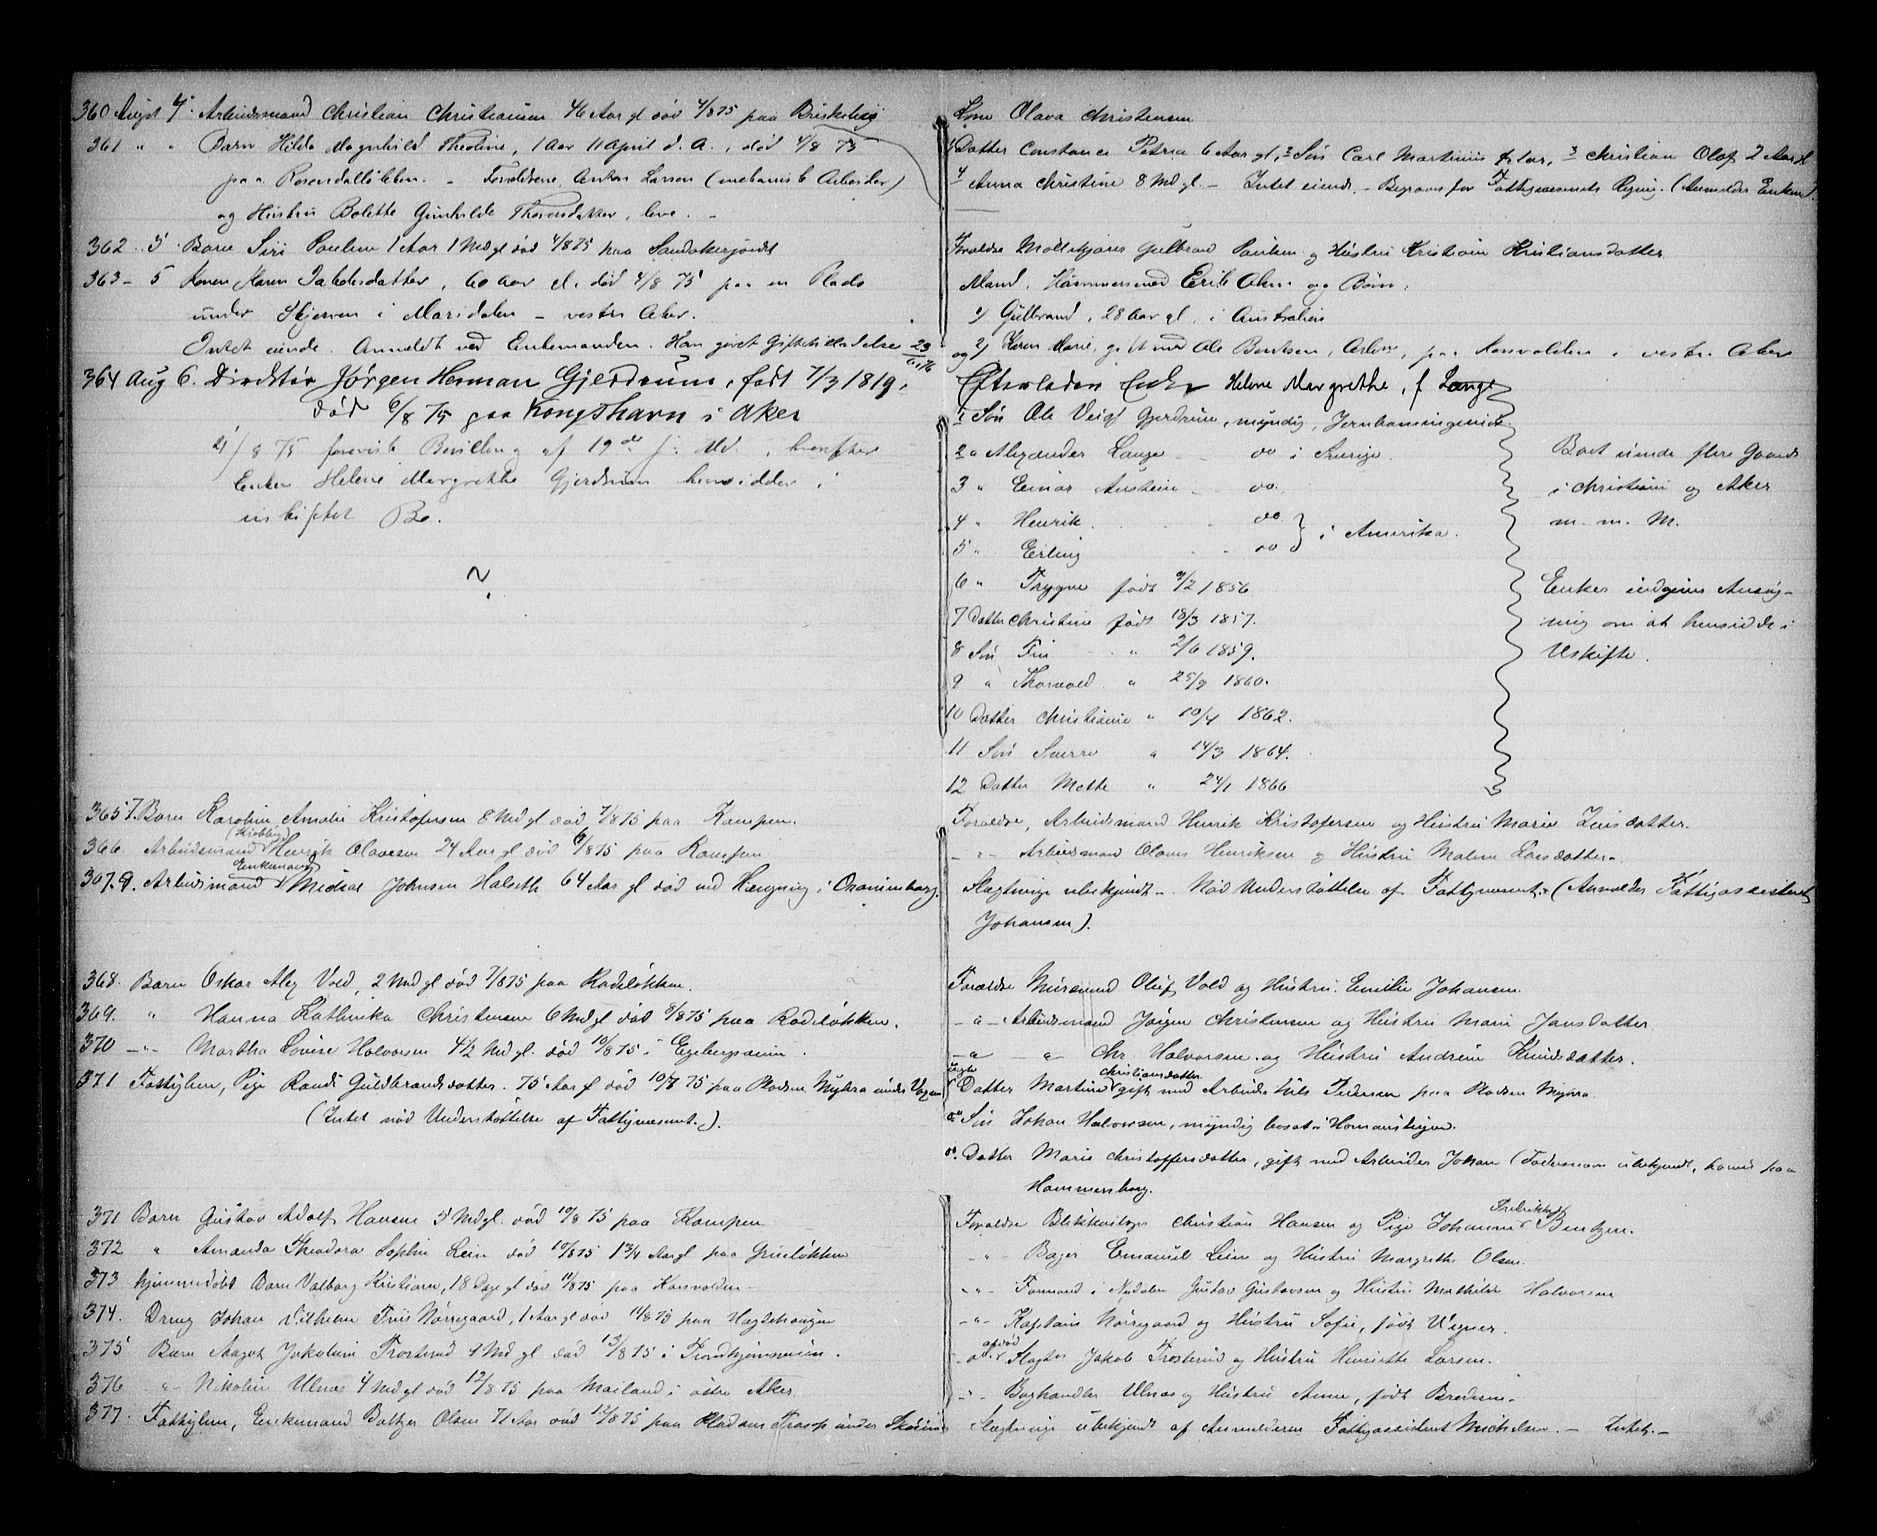 360 August 4. Arbeidsmand Christian Christiansen 46 Aar gl død 4/8 75 paa Briskebye
361 " " Barn Hilda Magnhild Theoline, 1 Aar 11 April d. A., død 4/8 75
paa Rosendalløkken. - Forældrene, Anton Larsen (mekanisk Arbeider)
og Hustru Bolette Gunhilde Thorensdatter, leve. -
362 . 5 . Barn Siri Paulsen 1 Aar 1 Md gl død 4/8 75 paa Sandakerjordet
363 - 5 Konen Karen Jakobsdatter, 60 aar gl. død 4/8 75 paa en Plads
under Skjerven i Maridalen - vestre Aker.
Intet eiende. Anmeldt ved Enkemanden. Ham givet Giftetilladelse 23
364 Aug 6. Direktør Jørgen Herman Gjerdrum, født 7/3 1819.
død 6/8 75 paa Kongshavn i Aker
21/8 75 foreviste Bevilling af 19de d: Md. , hvorefter
Enken Helene Margrethe Gjerdrum hensidder i
uskiftet Bo.
?
365 7. Barn Karoline Amalie Kristofersen 8 Md gl død 7/8 75 paa Kampen.
366. Arbeidsmand Henrik Olavesen 24 Aar gl død 6/8 75 paa Kampen
Enkemand
367. 9. Arbeidsmand Mikal Johnsen Halseth 64 Aar gl død ved Hængning i Oranienborg.
368. Barn Oskar Alex Vold, 2 Md gl død 7/8 75 paa Rodeløkken.
369. " Hanna Kathinka Christensen 6 Md gl død 8/8 75 paa Rodeløkken.
370 -"- Martha Lovise Halvorsen 4½ Md gl. død 10/8 75 i Egebergveien.
371 Fattiglem, Pige Randi Guldbrandsdatter. 75 Aar gl død 10/8 75 paa Pladsen Myhra under
(Intet nød Understøttelse af Fattigvæsenet.).
371 Barn Gustav Adolf Hansen 5 Md gl. død 10/8 75 paa Kampen
372 " Amanda Theodora Sophie Lein død 10/8 75 1 3/4 Aar gl paa Grüneløkken
373 hjemmedøbt Barn Valborg Kristiane, 18 Dage gl død 11/8 75 paa Korsvolden
374. Dreng Johan Vilhelm Friis Nørregaard, 1 Aar gl død 11/8 75 paa Hægdehaugen
375 Barn Aagot Jakobine Trosterud 9 Md gl. død 13/8 75 i Trondhjemsveien.
376 -"- Nikolin Ulnæs 4 Md gl død 12/8 75 paa Mailand i østre Aker
377. Fattiglem, Enkemand Baltzer Olsen 71 Aar død 12/8 75 paa Pladsen Trasop under
Kone Olava Christensen
1 Datter Constance Petrea 6 Aar gl, 2 Søn Carl Martinius 4 Aar, 3 Christian Olaf 2 Aar gl
4 Anna Christine 8 Md gl. - Intet eiende. - Begraves for Fattigvæsenets Regning. (Anmelder Enken).
Forældre Møllekjører Gulbrand Paulsen og Hustru Kristiane Kristiansdatter
Mand, Hammersmed Erik Olsen og Børn:
1) Gulbrand, 28 Aar gl, i Australien
og 2) Karen Marie, gift med Ole Berntsen, Arbeider, paa Korsvolden i vestre Aker
Efterladen Enke Helene Margrethe, f Lange
1 Søn Ole Veigl Gjerdrum, myndig, Jernbaneingeniør
2 " Alexander Lange do i Sverige.
3 " Einar Austein do.
4 " Henrik do
5 " Erling do } i Amerika.
6 " Trygve født 9/2 1856
7 Datter Christine født 18/3 1857.
8 Søn Fin " 2/6 1859.
9 " Thorvald " 25/9 1860.
10 Datter Christiane " 10/4 1862.
11 Søn Sverre " 14/3 1864.
12 Datter Mette " 24/1 1866
Boet eiende flere Gaarde
i Christiania og Aker
m. m. M.
Enken indgiver Ansøg-
ning om at hensidde i
Uskifte.
Forældre, Arbeidsmand Henrik Kristofersen og Hustru Marie Larsdatter.
-"- Arbeidsmand Olaves Henriksen og Hustru Malene Larsdatter.
Slægtninge ubekjendt. Nød Understøttelse af Fattigvæsenet. (Anmelder Fattigassistent
Johansen).
Forældre Murermand Oluf Vold og Hustru Emilie Johansen.
-"- Arbeidsmand Jørgen Christensen og Hustru Marie Jansdatter.
-"- -"- Chr. Halvorsen og Hustru Andrine Knudsdatter.
Christiansdatter
Datter Martine gift med Arbeider Nils Pedersen paa Pladsen Myhra
Søn Johan Halvorsen, myndig bosat i Homansbyen.
Datter Marie Christoffersdatter, gift med Arbeider Johan (Fadersnavn ubekjendt, boende paa
Hammersborg.
Fredrikke
Forældre Blikkenslager Christian Hansen og Pige Johanne Bentzen.
-"- Bager Emanuel Lein og Hustru Margrethe Olsen.
-"- Formand i Nydalen Gustav Gustavsen og Hustru Mathilde Halvorsen
-"- Kaptain Nørregaard og Hustru Sofie, født Wegner.
afdød
-"- Slagter Jakob Trosterud og Hustru Henriette Larsen.
-"- Boghandler Ulnæs og Hustru Anne, født Bredesen.
Slægtninge ubekjendt af Anmelderen Fattigassistent Michelsen. - Intet. -